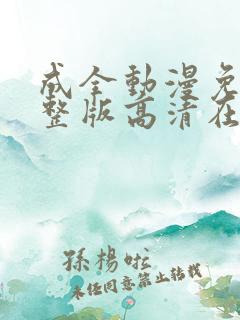 成全動漫免
整版高清在
孫楊啦
未經同意禁止轉載